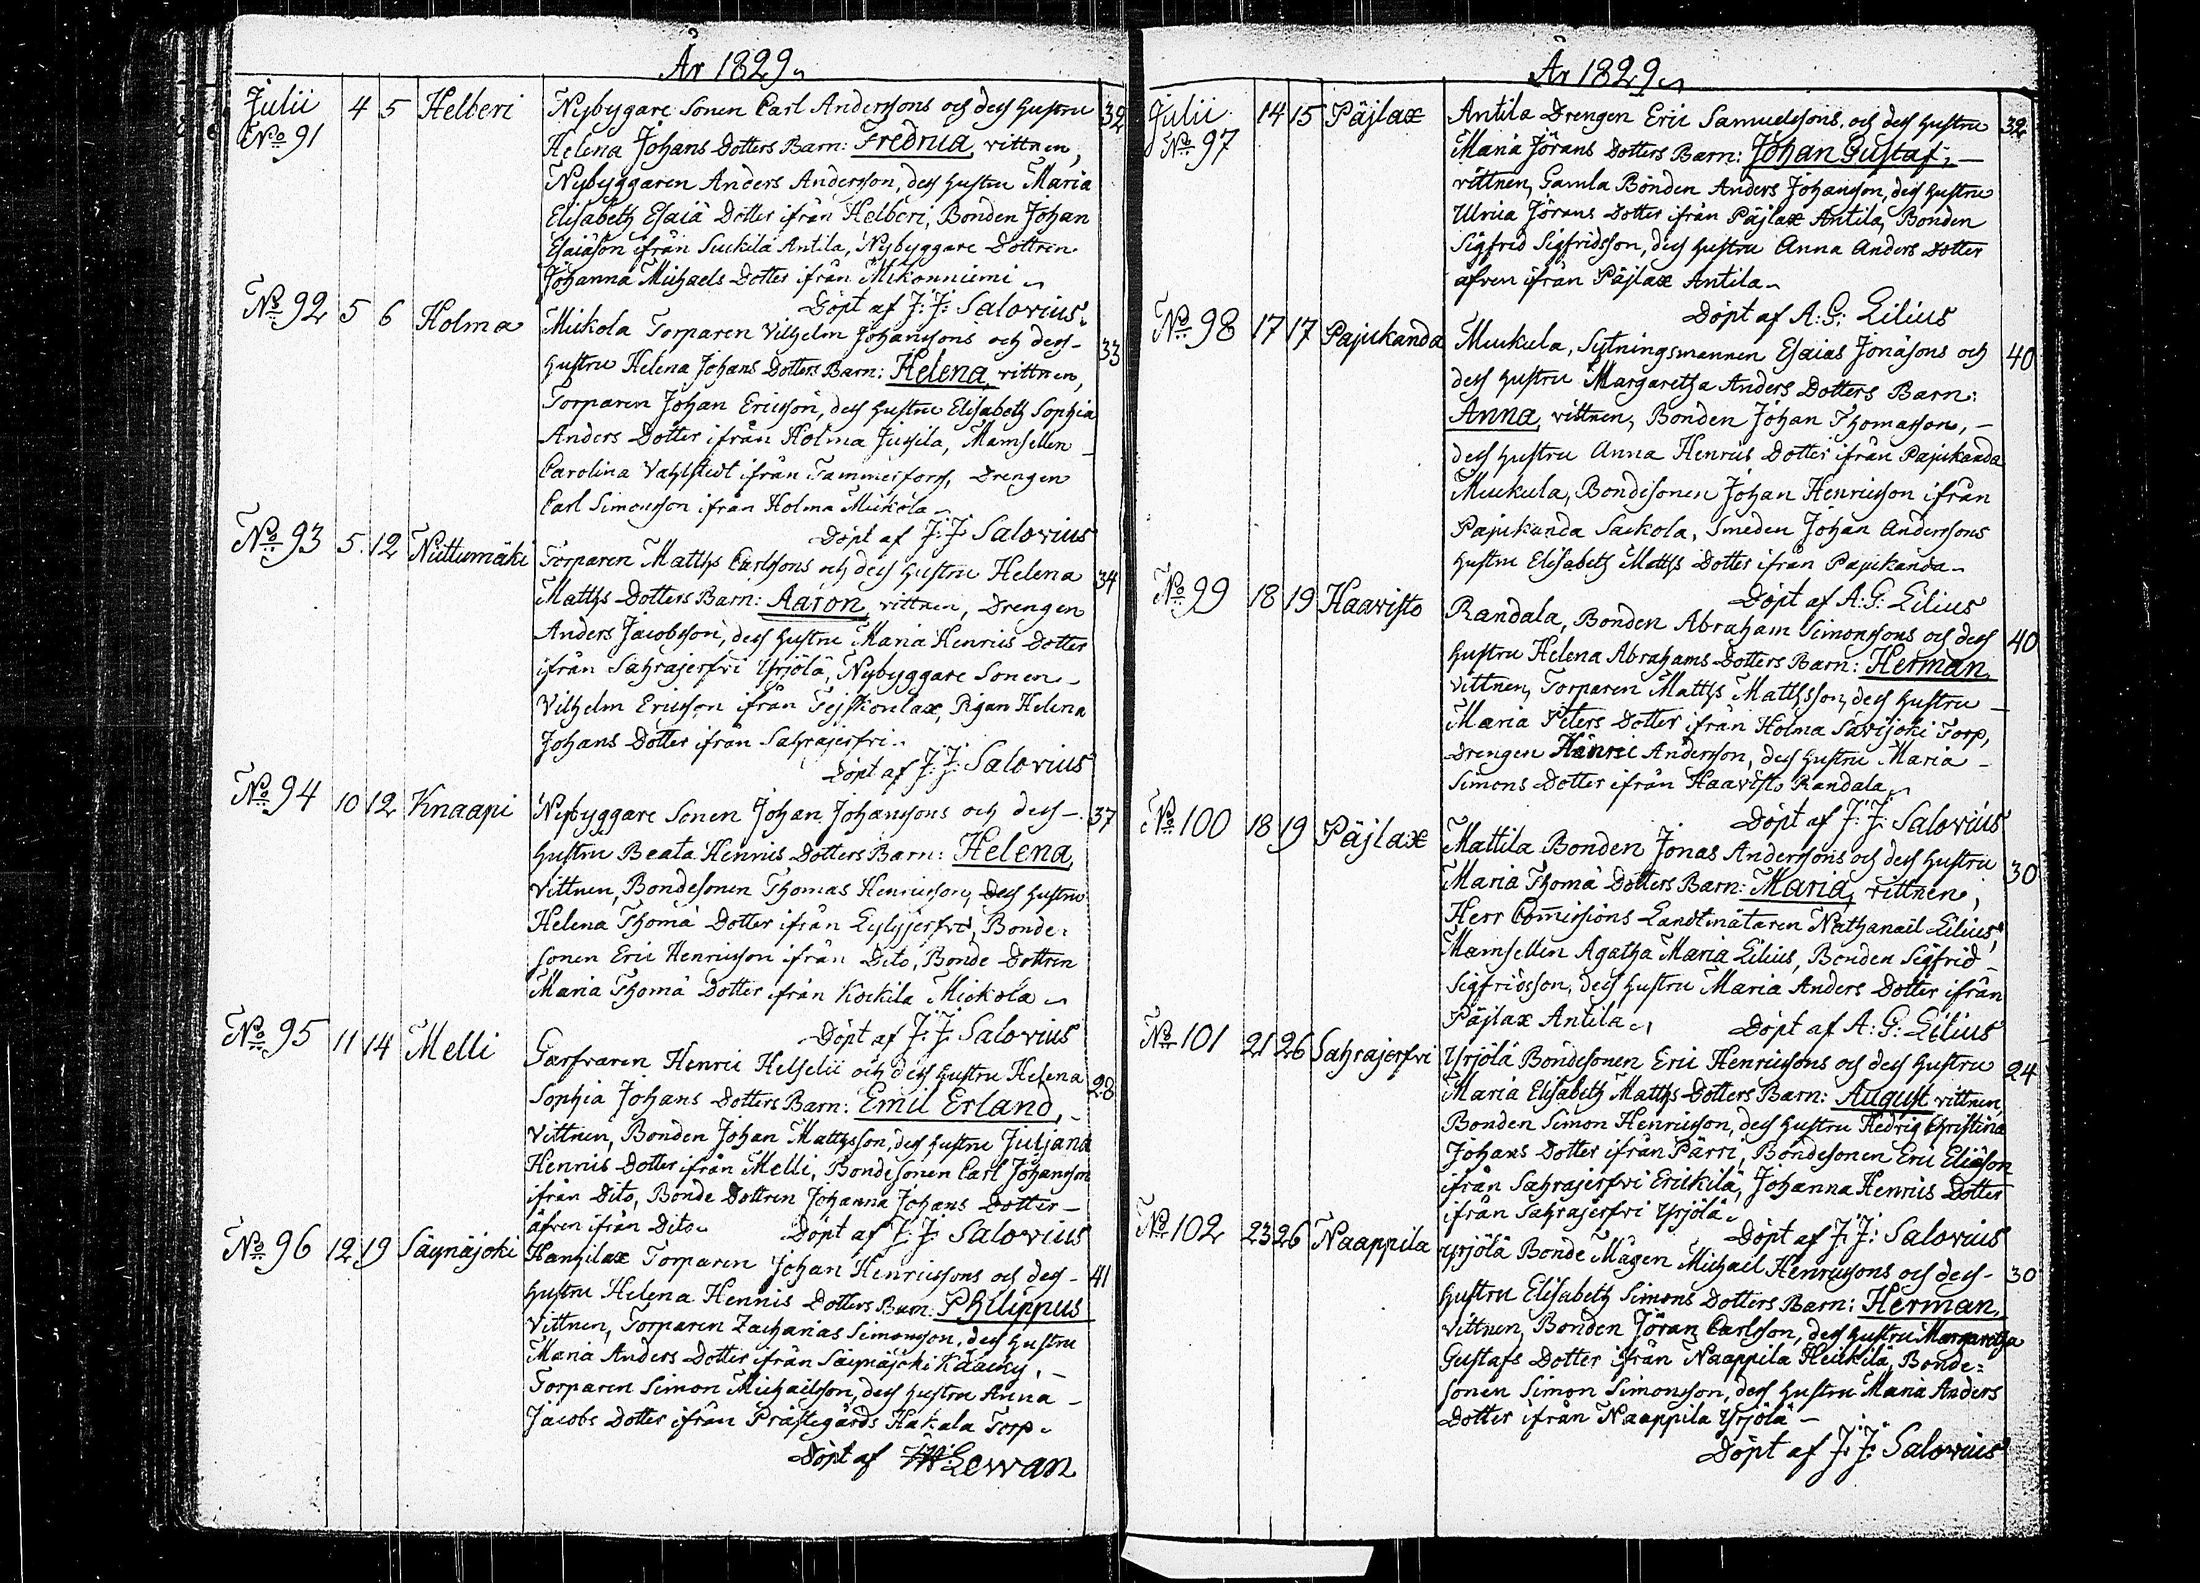 År 1829.
Julii 4 5 Helberi Nybyggare Sonen Carl Anderssons och dess hustru 32
No 91 Helena Johans Dotters Barn: Fredrica, vittnen,
Nybyggaren Anders Andersson, dess hustru Maria
Elisabeth Esaiä Dotter ifrån Helberi, Bonden Johan
Esaiäson ifrån Antila, Nybyggare Dottren
Johanna Michaels Dotter ifrån Mikonniemi
Döpt af J: J: Salovius.
No 92 5 6 Holma Mickola Torparen Vilhelm Johanssons och dess 33
hustru Helena Johans Dotters Barn: Helena, vittnen,
Torparen Johan Ericsson, dess hustru Elisabeth Sophia
Anders Dotter ifrån Holma Jussila, Mamsellen
Carolina Vahlstedt ifrån Tammerfors, Drengen
Carl Simonsson ifrån Holma Mickola
Döpt af J: J: Salovius
No 93 5 12 Niittumäki Torparen Matths Carlssons och dess hustru Helena 34
Matths Dotters Barn: Aaron, vittnen, Drengen
Anders Jacobsson, dess hustru Maria Henrics Dotter
ifrån Sahrajerfvi Yrjölä, Nybyggare Sonen
Vilhelm Ericsson ifrån Pigan Helena
Johans Dotter ifrån Sahrajerfvi
Döpt af J: J: Salovius
No 94 10 12 Knaapi Nybyggare Sonen Johan Johanssons och dess 37
hustru Beata Henrics Dotters Barn: Helena,
vittnen, Bondesonen Thomas Henricsson, dess hustru
Helena Thomä Dotter ifrån Bonde-
sonen Eric Henricsson ifrån Dito, Bonde Dottren
Maria Thomä Dotter ifrån Kockila Mickola
Döpt af J: J: Salovius
No 95 11 14 Melli Garfvaren Henric Helselii och dess hustru Helena 28
Sophia Johans Dotters Barn: Emil Erland,
vittnen, Bonden Johan Mattsson, dess hustru Juljana
Henrics Dotter ifrån Melli, Bondesonen Carl Johansson
ifrån Dito, Bonde Dottren Johanna Johans Dotter
äfven ifrån Dito. Döpt af J: J: Salovius
No 96 12 19 Säynäjoki Torparen Johan Henricssons och dess 41
hustru Helena Henrics Dotters Barn: Philippus
vittnen, Torparen Zacharias Simonsson, dess hustru
Maria Anders Dotter ifrån Säynäjoki
Torparen Simon Michaelsson, dess hustru Anna
Jacobs Dotter ifrån Prästegårds Hakala Torp
Döpt af Lewan
År 1829.
Julii 14 15 Päjlax Antila Drengen Eric Samuelssons och dess hustru 32
No 97 Maria Jörans Dotters Barn: Johan Gustaf;
vittnen, Gamla Bonden Anders Johansson, dess hustru
Ulrica Jörans Dotter ifrån Päjlax Antila, Bonden
Sigfrid Sigfridsson, dess hustru Anna Anders Dotter
äfven ifrån Päjlax Antila
Döpt af A: G: Lilius
No 98 17 17 Pajukanda Muckula, Sytningsmannen Esaias Jonäsons och 40
dess hustru Margaretha Anders Dotters Barn:
Anna, vittnen, Bonden Johan Thomasson,
dess hustru Anna Henrics Dotter ifrån Pajukanda
Muckula, Bondesonen Johan Henricsson ifrån
Pajukanda Sackola, Smeden Johan Anderssons
hustru Elisabeth Matths Dotter ifrån Pajukanda
Döpt af A: G: Lilius
No 99 18 19 Haavisto Randala, Bonden Abraham Simonssons och dess 40
hustru Helena Abrahams Dotters Barn: Herman,
vittnen, Torparen Matths Matthsson, dess hustru
Maria Peters Dotter ifrån Holma Savijoki Torp,
Drengen Henric Andersson, dess hustru Maria
Simons Dotter ifrån Haavisto Randala
Döpt af J: J: Salovius
No 100 18 19 Päjlax Mattila Bonden Jonas Anderssons och dess hustru 30
Maria Thomä Dotters Barn: Maria, vittnen,
Herr Commissions Landtmätaren Nathanaël Lilius,
Mamsellen Agatha Maria Lilius, Bonden Sigfrid
Sigfridsson, dess hustru Maria Anders Dotter ifrån
Päjlax Antila Döpt af A: G: Lilius
No 101 21 26 Sahrajerfvi Yrjölä Bondesonen Eric Henricssons och dess hustru 24
Maria Elisabeth Matths Dotters Barn: August vittnen,
Bonden Simon Henricsson, dess hustru Hedvig Christina
Johans Dotter ifrån Pärri, Bondesonen Eric Eliäson
ifrån Sahrajerfvi Erickilä, Johanna Henrics Dotter
ifrån Sahrajerfvi Yrjölä.
Döpt af J: J: Salovius
No 102 23 26 Naappila Yrjölä Bonde Mågen Michael Henricssons och dess 30
hustru Elisabeth Simons Dotters Barn: Herman,
vittnen, Bonden Jöran Carlsson, dess hustru Margaretha
Gustafs Dotter ifrån Naappila Heickilä, Bonde-
sonen Simon Simonsson, dess hustru Maria Anders
Dotter ifrån Naappila Yrjölä
Döpt af J: J: Salovius